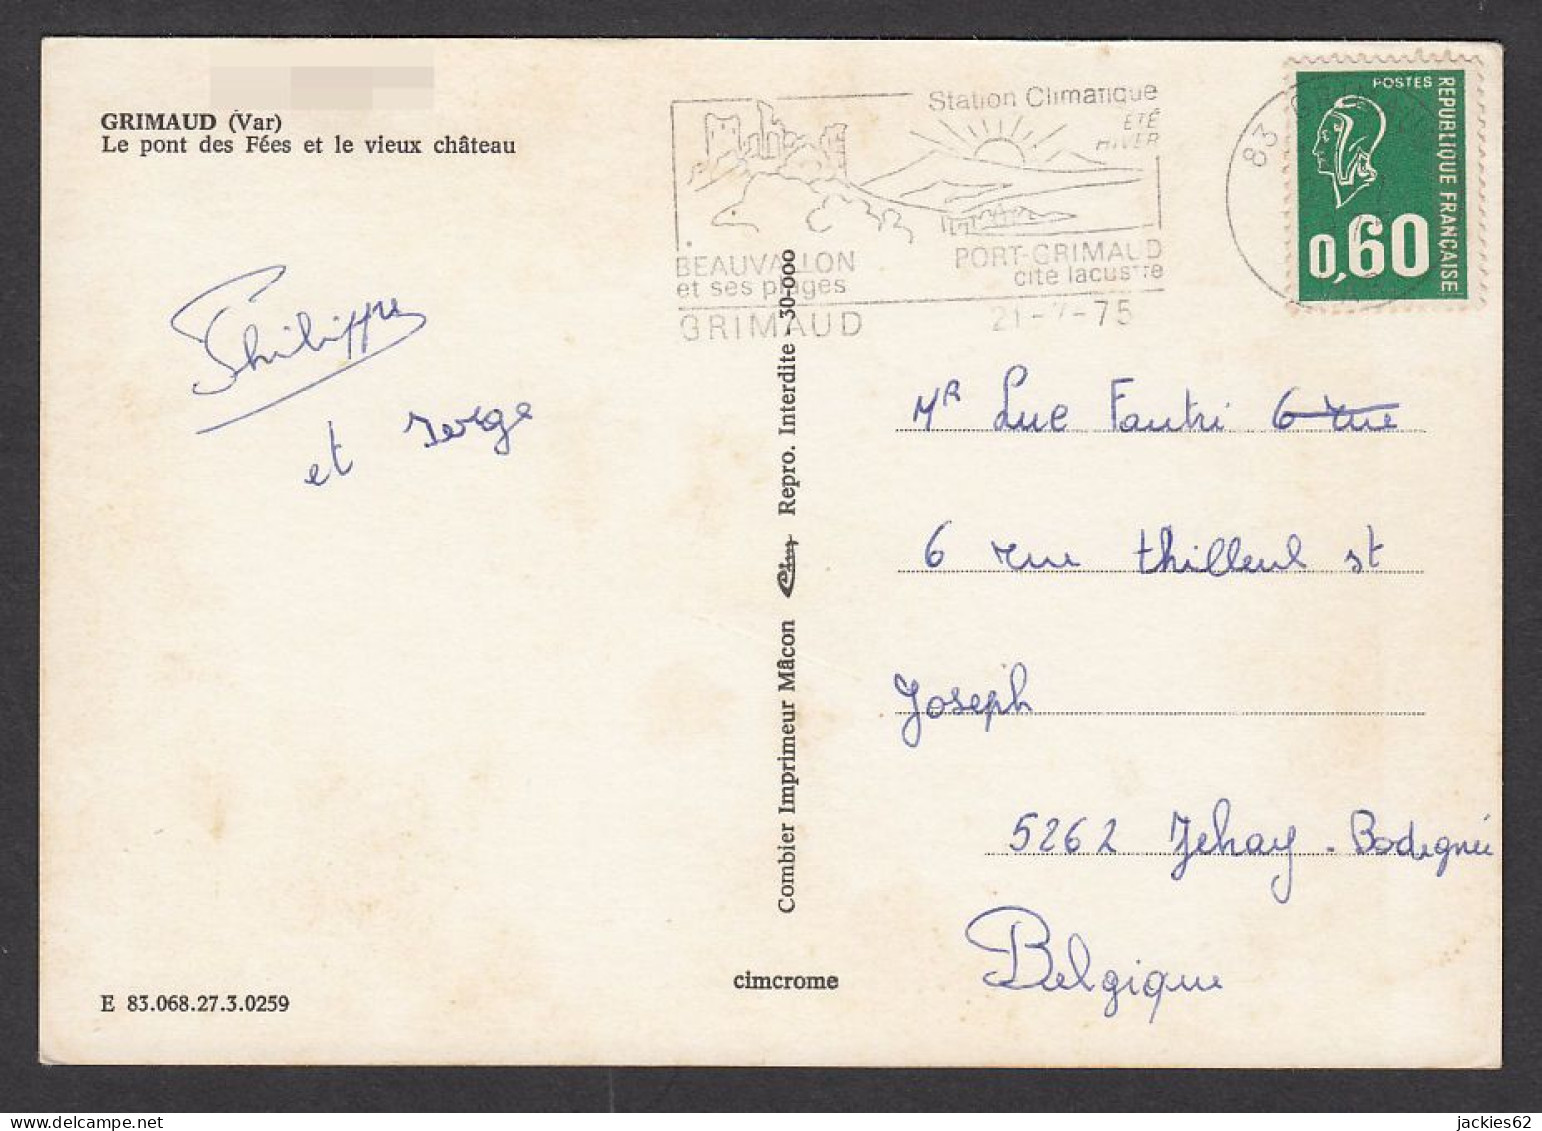 GRIMAUD (Var)
Le pont des Fées et le vieux château
Philippe
et Serge
E 83.068.27.3.0259
Station Climatique
ÉTÉ
HIVER
BEAUVALLON
et ses plages
PORT-GRIMAUD
cité lacustre
GRIMAUD
21-7-75
83
POSTES
REPUBLIQUE FRANÇAISE
0,60
Combier Imprimeur Mâcon Cim Repro. Interdite - 30-000
cimcrome
Mr Luc Fautri 6 rue
6 rue thilleul st
Joseph
5262 Jehay - Bodegnée
Belgique
jackies62